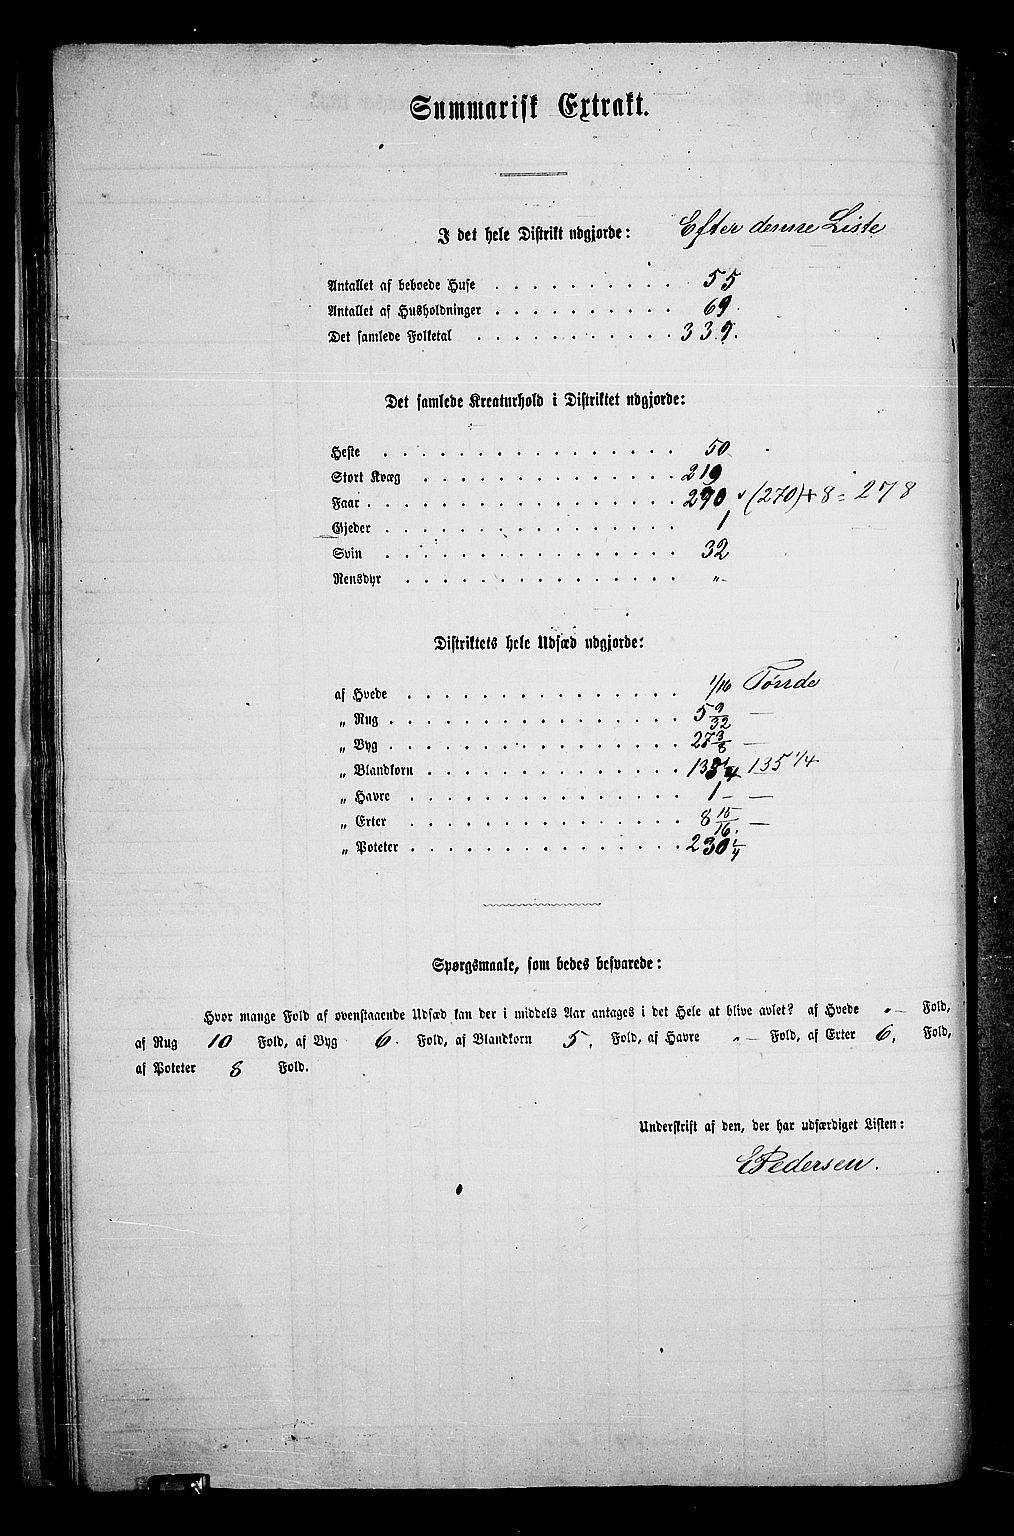 Summarisk Extrakt.
I det hele Distrikt udgjorde: Efter denne Liste
Antallet af beboede Huse . . . . . . . . . . 55
Antallet af Husholdninger . . . . . . . . . . 69.
Det samlede Folketal . . . . . . . . . . . 339.
Det samlede Kreaturhold i Distriktet udgjorde:
Heste . . . . . . . . . . . . . . . . 50
Stort Kvæg . . . . . . . . . . . . . . 219
Faar . . . . . . . . . . . . . . . . 270 (270) + 8 = 278
Gjeder . . . . . . . . . . . . . . . 1
Svin . . . . . . . . . . . . . . . . 32
Rensdyr . . . . . . . . . . . . . . „-
Distriktets hele Udsæd udgjorde:
af Hvede . . . . . . . . . . . . . . 1/16 Tønde
„ Rug . . . . . . . . . . . . . . . 5 9/32 —
„ Byg . . . . . . . . . . . . . . . 27 3/8 —
„ Blandkorn . . . . . . . . . . . . 135 1/4 135 1/4
„ Havre . . . . . . . . . . . . . . 1 - —
„ Erter . . . . . . . . . . . . . . 8 15/16. —
„ Poteter . . . . . . . . . . . . . 230 1/4
Spørgsmaale, som bedes besvarede:
Hvor mange Fold af ovenstaaende Udsæd kan der i middels Aar antages i det Hele at blive avlet? af Hvede „— Fold,
af Rug 10 Fold, af Byg 6. Fold, af Blandkorn 5. Fold, af Havre „— Fold, af Erter 6. Fold,
af Poteter 8 Fold.
Underskrift af den, der har udfærdiget Listen:
EPedersen.